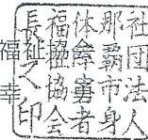 社団法人
那覇市身
体障害者
福祉協会
長之印
福
幸